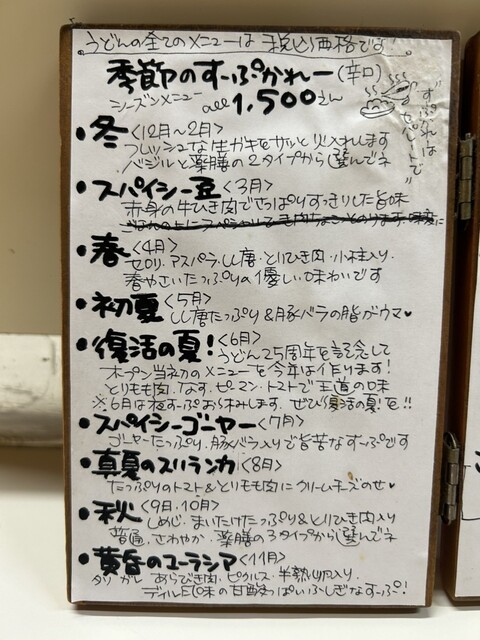 うどんの全てのメニューは税込価格です
季節のすーぷかれー(辛口)
シーズンメニュー all 1,500えん
ずーぷ ごはんは
セパレートで
・冬〈12月〜2月〉
フレッシュな生ガキをサッと火入れします
バジルと薬膳の2タイプから選んでネ
・スパイシー豆〈3月〉
赤身の牛ひき肉でさっぱりすっきりした旨味
・春〈4月〉
セロリ・アスパラ・しし唐・とりひき肉・小柱入り
春やさいたっぷりの優しい味わいです
・初夏〈5月〉
しし唐たっぷり&豚バラの脂がウマ♥
・復活の夏!〈6月〉
うどん25周年を記念して
オープン当初のメニューを今年は作ります!
とりもも肉・なす・ピーマン・トマトで王道の味
※6月は夜すーぷお休みします。ぜひ復活の夏!を!!
・スパイシーゴーヤー〈7月〉
ゴーヤーたっぷり、豚バラ入りで旨苦なすーぷです
・真夏のスリランカ〈8月〉
たっぷりのトマト&とりもも肉にクリームチーズのせ♥
・秋〈9月、10月〉
しめじ、まいたけたっぷり&とりひき肉入り
普通、さわやか、薬膳の3タイプから選んでネ
・黄昏のユーラシア〈11月〉
タソガレ あらびき肉・ピクルス・半熟卵入り
ディル風味の甘酸っぱいふしぎなすーぷ!